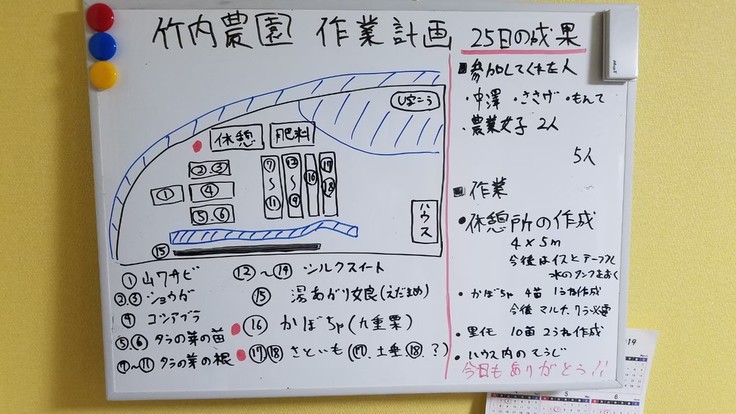 竹内農園 作業計画
U字こう
休憩 肥料
②.③
① ④
⑤.⑥
⑦〜⑪
⑯
⑰⑱
ハウス
⑮
①山ワサビ
②③ショウガ
④コシアブラ
⑤.⑥タラの芽の苗
⑦〜⑪タラの芽の根
⑫〜⑭シルクスイート
⑮湯あがり女良(えだまめ)
⑯かぼちゃ(九重栗)
⑰⑱さといも(⑰.土垂.⑱.?)
25日の成果
■参加してくれた人
・中澤 ・ささげ ・もんて
・農業女子 2人
5人
■作業
・休憩所の作成
4×5m
今後はイスとテーブルと
水のタンクをおく
・かぼちゃ 4苗 1うね作成
今後 マルチ、ワラ必要
・里芋 10苗 2うね作成
・ハウス内のそうじ
今日もありがとう!!
2019
5 6